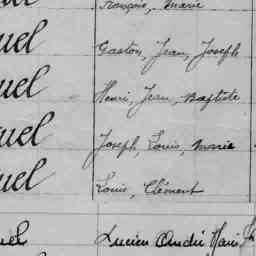 François, Marie
uel Gaston, Jean, Joseph
uel Henri, Jean, Baptiste
uel Joseph, Louis, Marie
uel Louis, Clément
uel Lucien André Marie